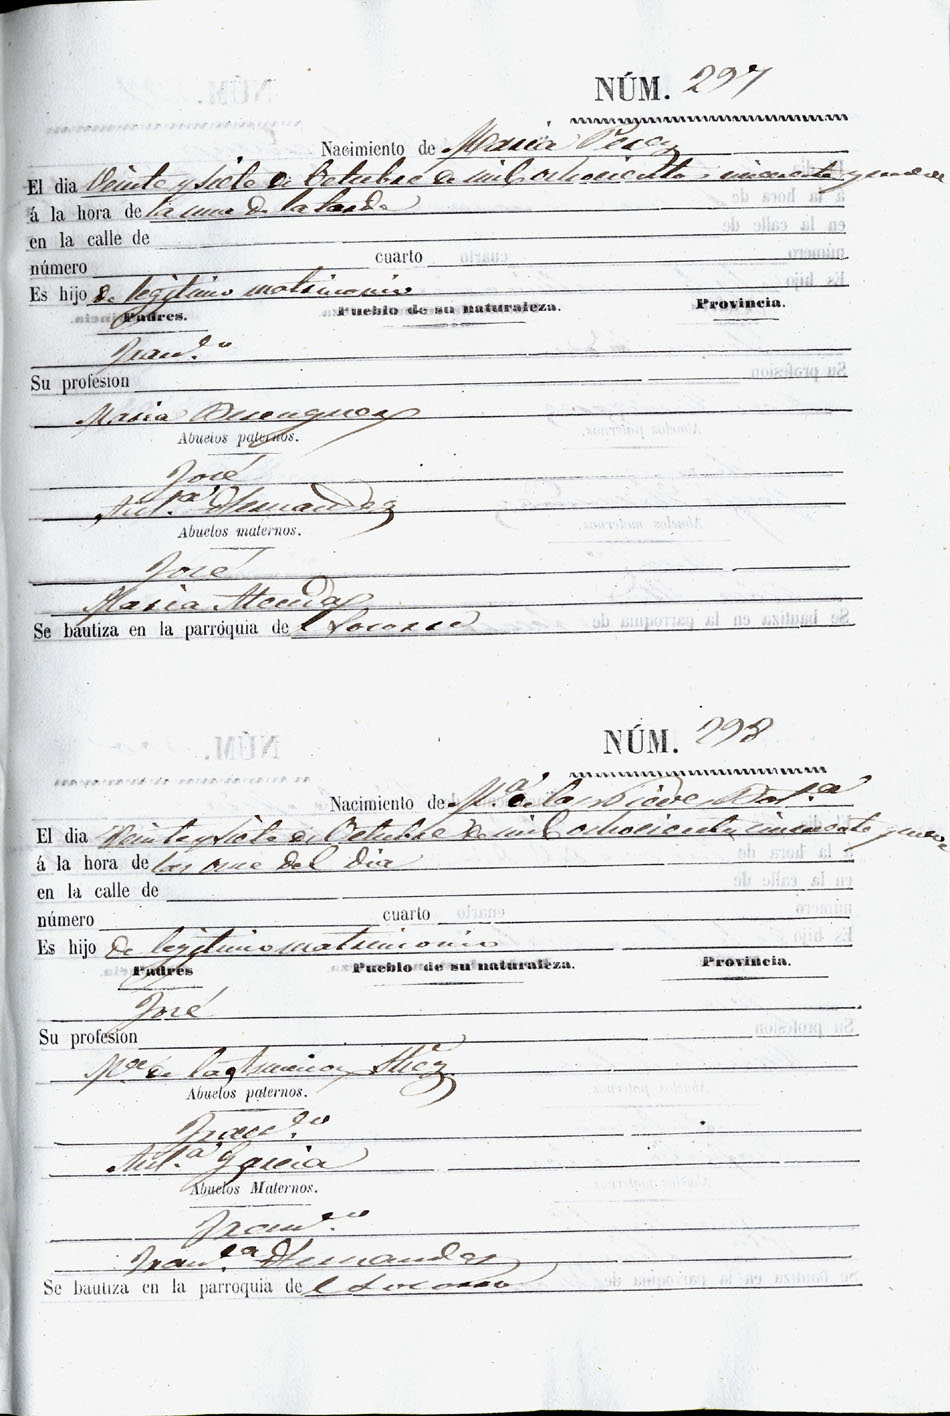 NÚM. 297
Nacimiento de Maria Perez
El dia Veinte y siete de Octubre de mil ochociento cincuenta y nueve
á la hora de la una de la tarde
en la calle de
número cuarto
Es hijo de legitimo matrimonio
Padres. Pueblo de su naturaleza. Provincia.
Fran.co
Su profesion
Maria
Abuelos paternos.
José
Ant.a Hernandez
Abuelos maternos.
José
Maria
Se bautiza en la parróquia de el Socorro
NÚM. 298
Nacimiento de M.a de las Nieves
El dia Veinte y siete de Octubre de mil ochociento cincuenta y nueve
á la hora de las once del dia
en la calle de
número cuarto
Es hijo de legitimo matrimonio
Padres Pueblo de su naturaleza. Provincia.
José
Su profesion
M.a de la
Abuelos paternos.
Fran.co
Ant.a Garcia
Abuelos Maternos.
Fran.co
Fran.ca Hernandez
Se bautiza en la parroquia de el Socorro